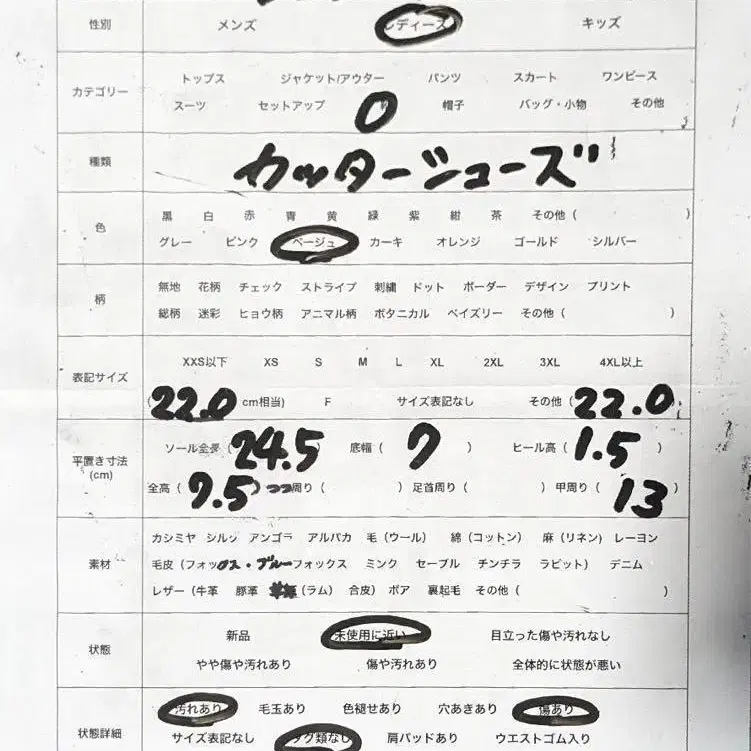 性別 メンズ レディース キッズ
カテゴリー
トップス ジャケット/アウター パンツ スカート ワンピース
スーツ セットアップ 帽子 バッグ・小物 その他
種類 カッターシューズ
色
黒 白 赤 青 黄 緑 紫 紺 茶 その他 ( )
グレー ピンク ベージュ カーキ オレンジ ゴールド シルバー
柄
無地 花柄 チェック ストライプ 刺繍 ドット ボーダー デザイン プリント
総柄 迷彩 ヒョウ柄 アニマル柄 ボタニカル ペイズリー その他 ( )
表記サイズ
XXS以下 XS S M L XL 2XL 3XL 4XL以上
(22.0 cm相当) F サイズ表記なし その他 (22.0)
平置き寸法
(cm)
ソール全長 (24.5) 底幅 (7) ヒール高 (1.5)
全高 (7.5) 周り ( ) 足首周り ( ) 甲周り (13)
素材
カシミヤ シルク アンゴラ アルパカ 毛 (ウール) 綿 (コットン) 麻 (リネン) レーヨン
毛皮 (フォックス・ブルーフォックス ミンク セーブル チンチラ ラビット) デニム
レザー (牛革 豚革 (ラム) 合皮) ボア 裏起毛 その他 ( )
状態
新品 未使用に近い 目立った傷や汚れなし
やや傷や汚れあり 傷や汚れあり 全体的に状態が悪い
状態詳細
汚れあり 毛玉あり 色褪せあり 穴あきあり 傷あり
サイズ表記なし タグ類なし 肩パッドあり ウエストゴム入り